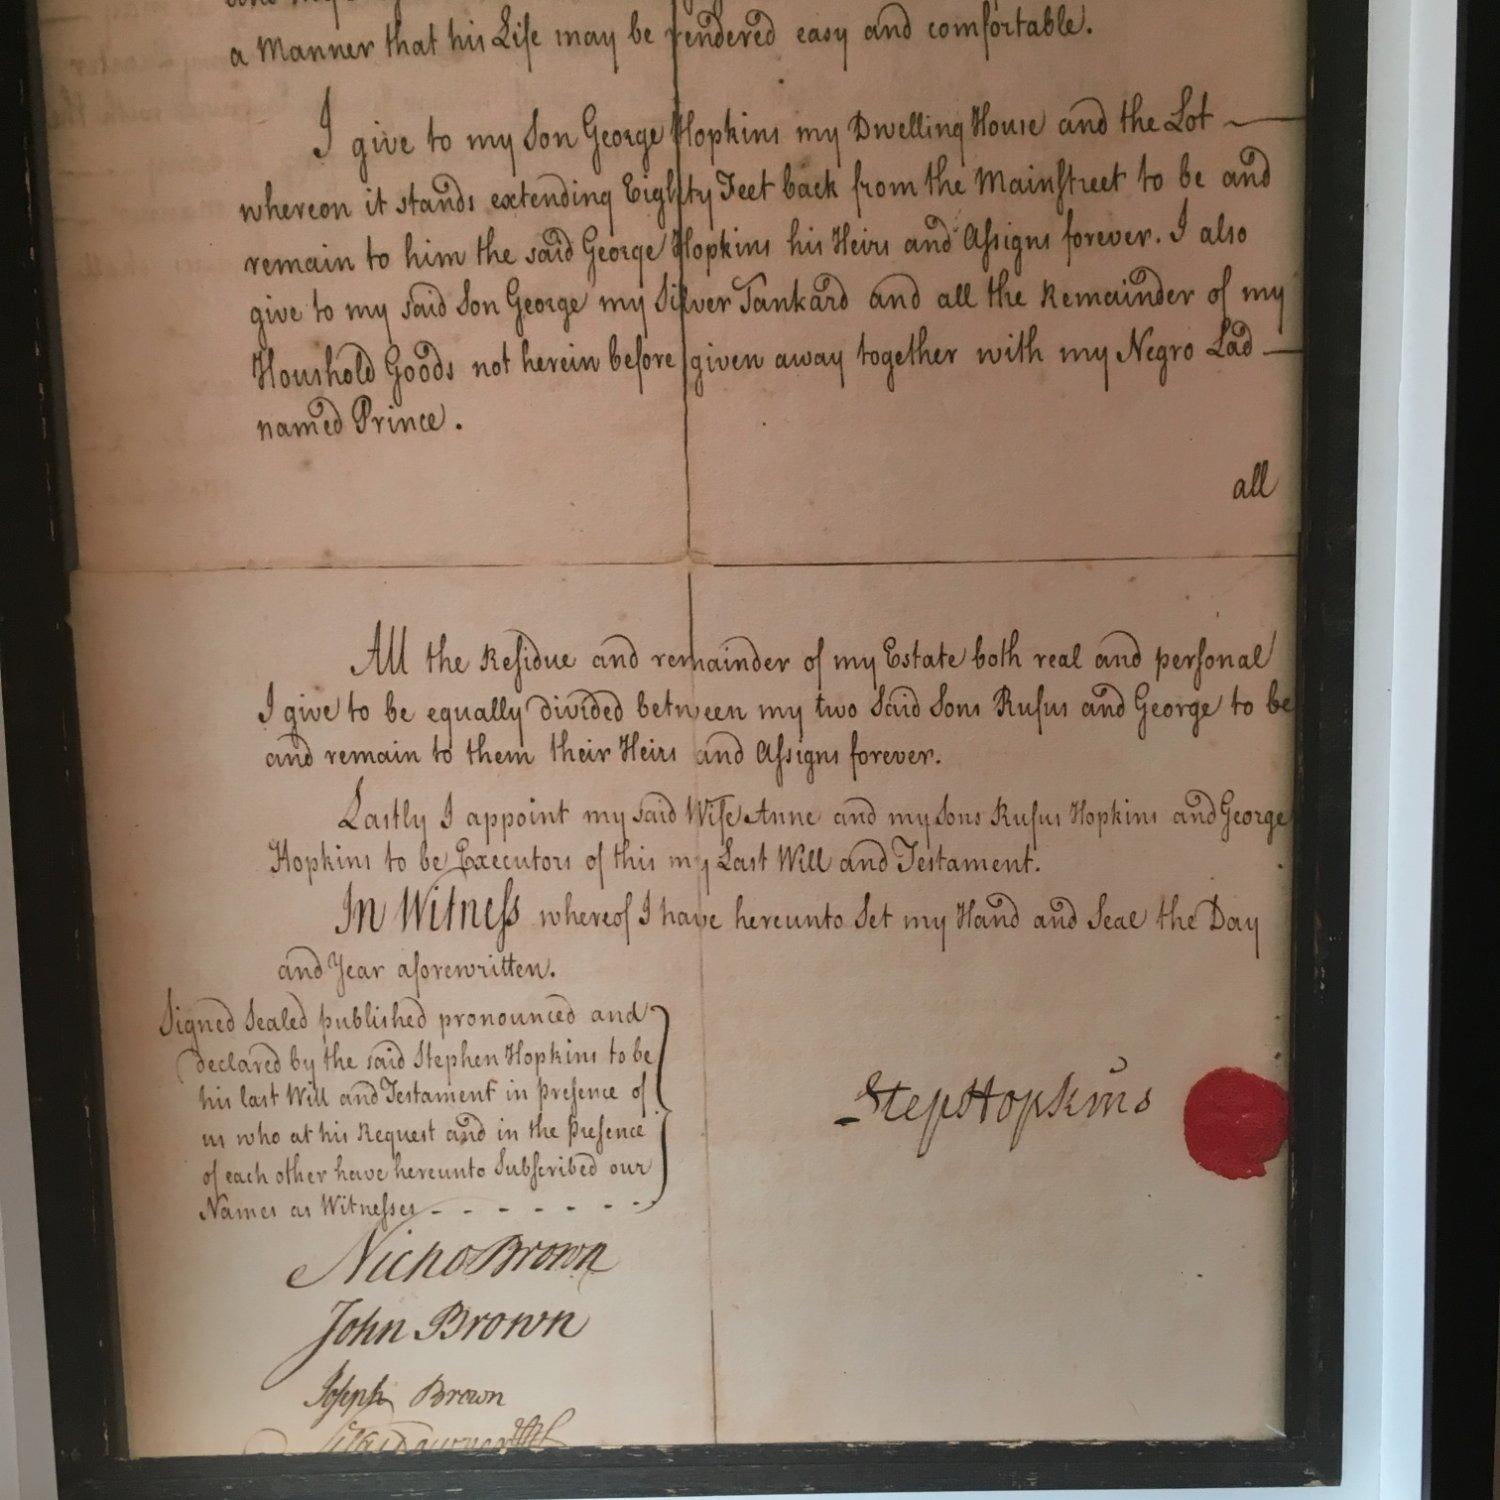 a Manner that his Life may be rendered easy and comfortable.
I give to my Son George Hopkins my Dwelling House and the Lot
whereon it stands extending Eighty Feet back from the Mainstreet to be and
remain to him the said George Hopkins his Heirs and Assigns forever. I also
give to my said Son George my Silver Tankard and all the Remainder of my
Houshold Goods not herein before given away together with my Negro Lad
named Prince.
all
All the Residue and remainder of my Estate both real and personal
I give to be equally divided between my two Said Sons Rufus and George to be
and remain to them their Heirs and Assigns forever.
Lastly I appoint my said Wife Anne and my Sons Rufus Hopkins and George
Hopkins to be Executors of this my Last Will and Testament.
In Witness whereof I have hereunto Set my Hand and Seal the Day
and Year aforewritten.
Signed Sealed published pronounced and
declared by the said Stephen Hopkins to be
his last Will and Testament in Presence of
us who at his Request and in the Presence
of each other have hereunto Subscribed our
Names as Witnesses - - - - - - -
Step Hopkins
Nicho Brown
John Brown
Joseph Brown